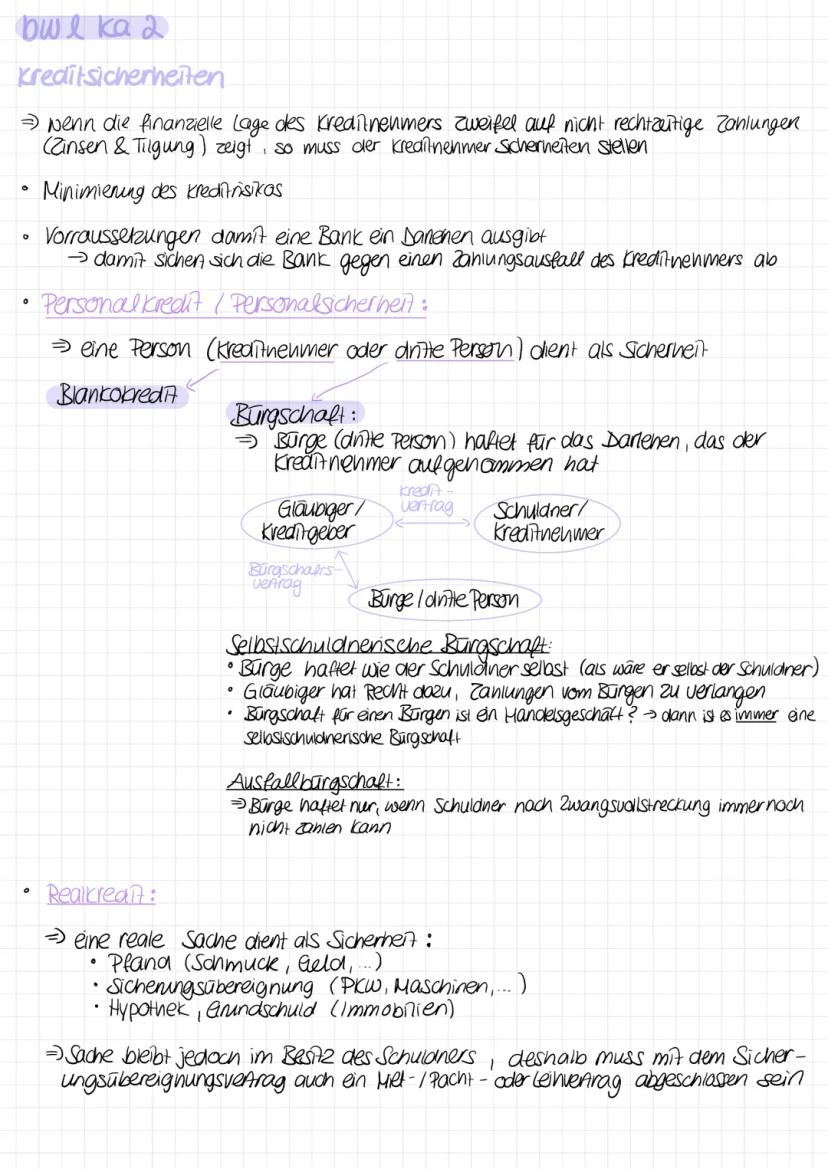 bwl ka 2
Kreditsicherheiten
⇒ wenn die finanzielle Lage des Kreditnehmers zweifel auf nicht rechtzeitige Zahlungen
(Zinsen & Tilgung) zeigt, so muss der Kreditnehmer Sicherheiten stellen
• Minimierung des Kreditrisikos
• Vorraussetzungen damit eine Bank ein Darlehen ausgibt
→ damit sichert sich die Bank gegen einen Zahlungsausfall des Kreditnehmers ab
• Personalkredit / Personalsicherheit:
⇒ eine Person (Kreditnehmer oder dritte Person) dient als Sicherheit
Blankokredit
Bürgschaft:
⇒ Bürge (dritte Person) haftet für das Darlehen, das der
Kreditnehmer aufgenommen hat
Kredit-
vertrag
Gläubiger/
Kreditgeber
Schuldner/
Kreditnehmer
Bürgschafts-
vertrag
Bürge / dritte Person
Selbstschuldnerische Bürgschaft:
• Bürge haftet wie der Schuldner selbst (als wäre er selbst der Schuldner)
• Gläubiger hat Recht dazu, Zahlungen vom Bürgen zu verlangen
• Bürgschaft für einen Bürgen ist ein Handelsgeschäft? → dann ist es immer eine
selbstschuldnerische Bürgschaft
Ausfallbürgschaft:
⇒ Bürge haftet nur, wenn Schuldner nach Zwangsvollstreckung immer noch
nicht zahlen kann
• Realkredit:
⇒ eine reale Sache dient als Sicherheit:
• Pfand (Schmuck, Geld, ...)
• Sicherungsübereignung (PKW, Maschinen, ...)
• Hypothek, Grundschuld (Immobilien)
⇒ Sache bleibt jedoch im Besitz des Schuldners, deshalb muss mit dem Sicher-
ungsübereignungsvertrag auch ein Miet-/Pacht- oder Leihvertrag abgeschlossen sein